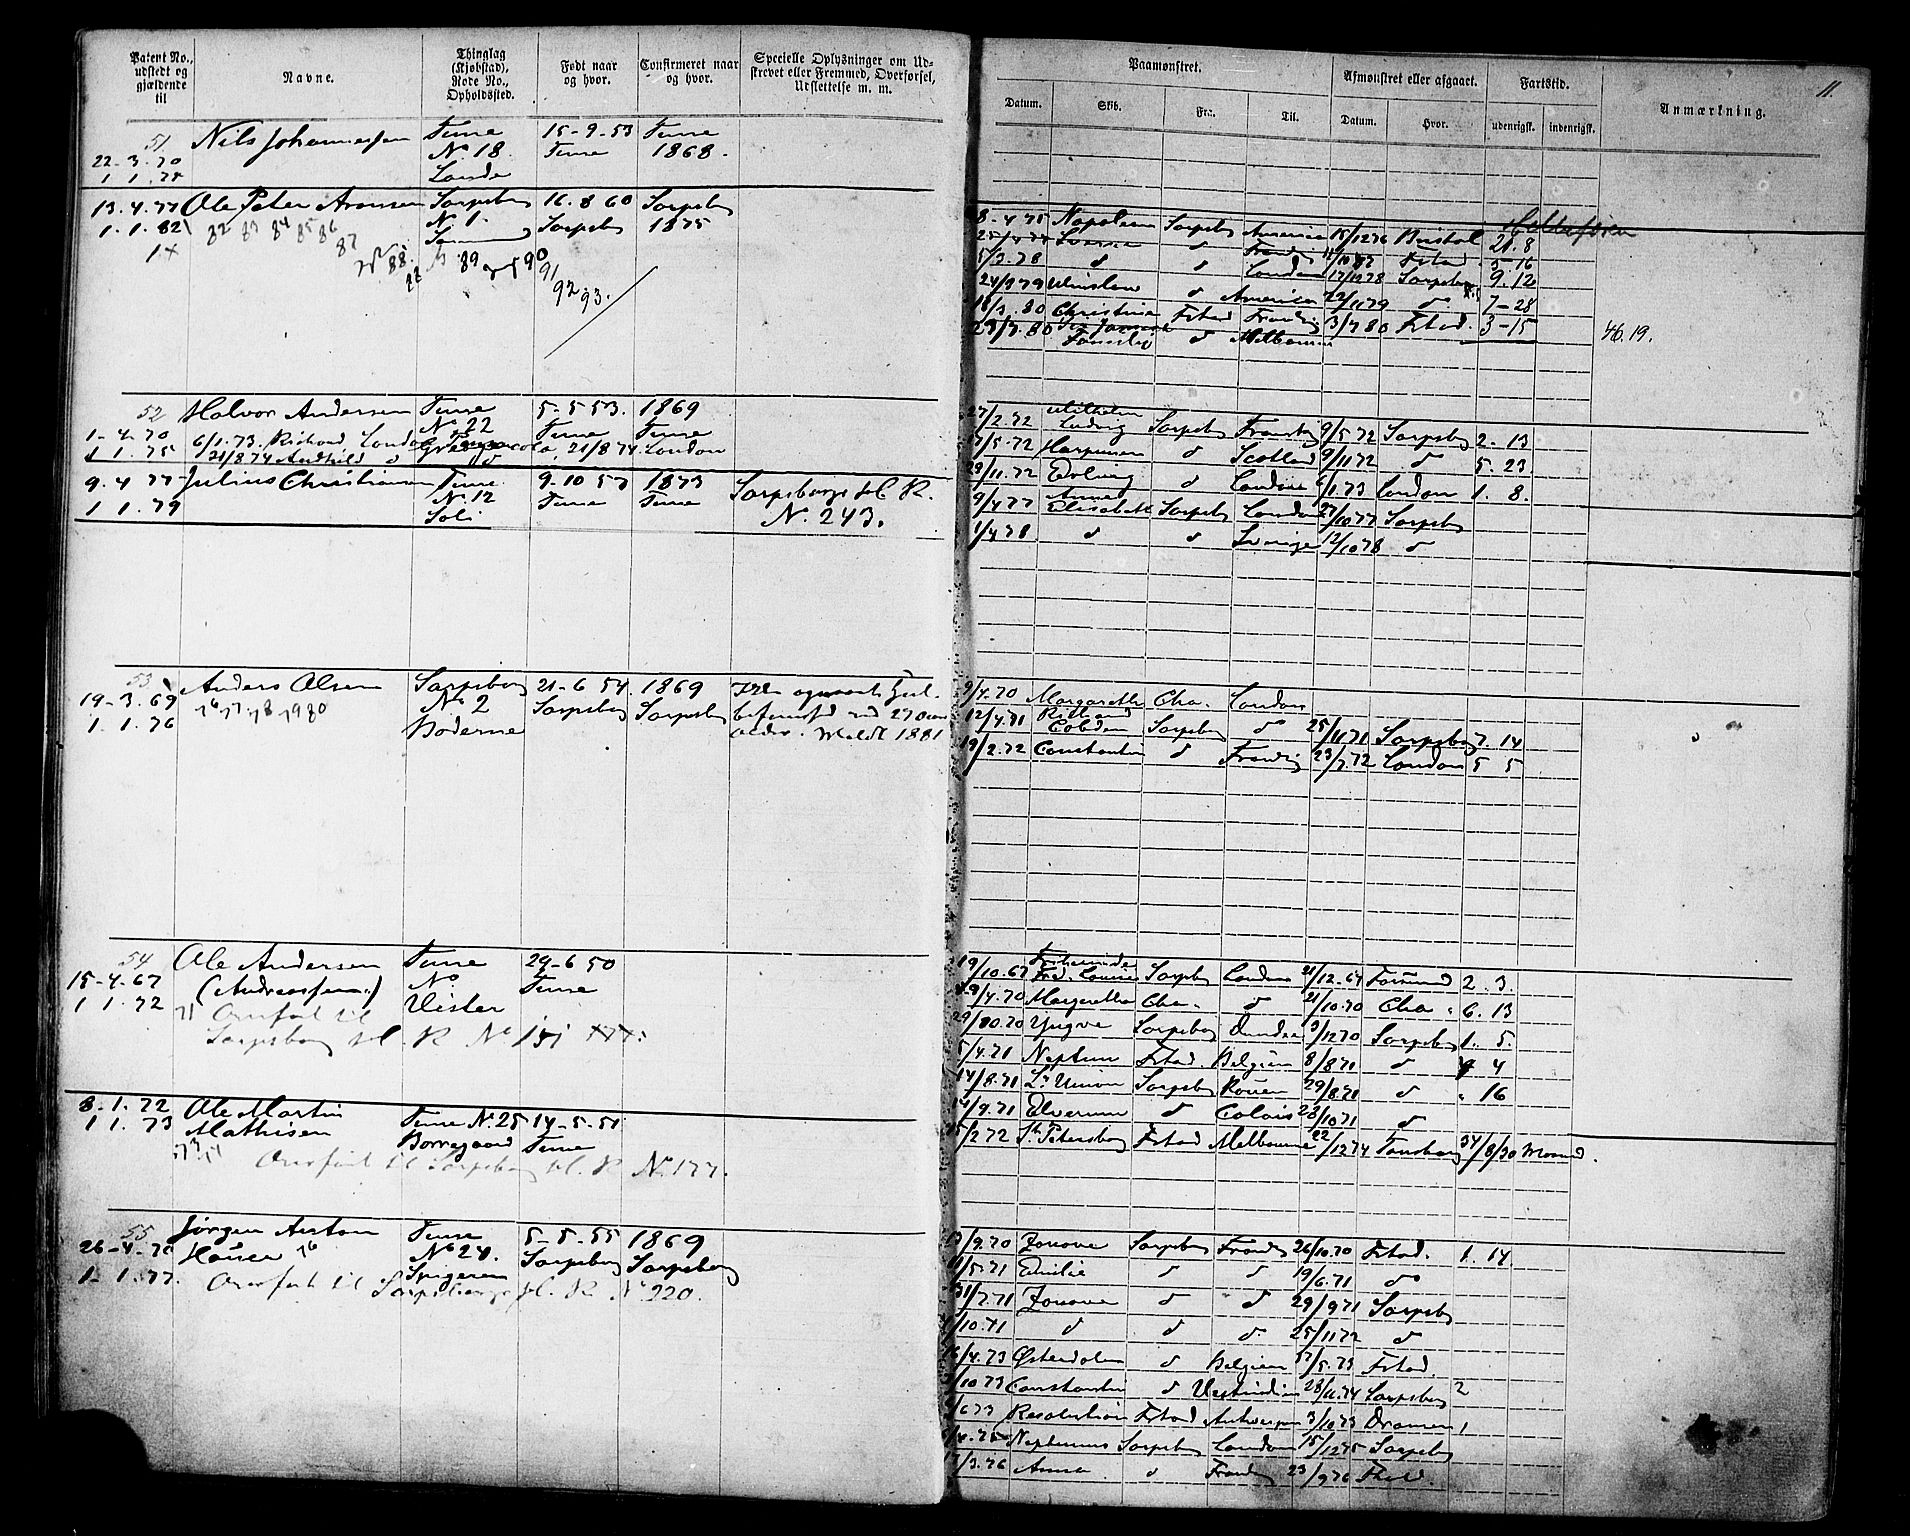 Patent No., udstedt og gjældende til
Navne.
Thinglag (Kjøbstad), Rode No., Opholdssted.
Født naar og hvor.
Confirmeret naar og hvor.
Specielle Oplysninger om Udskrevet eller Fremmed, Overførsel, Udslettelse m. m.
Paamønstret.
Afmønstret eller afgaaet.
Fartstid.
Anmærkning.
11.
Datum. Skib. Fra. Til. Datum. Hvor. udenrigsk. indenrigsk.
51 Nils Johannessen Tune 15-9-53 Tune
22-3.70 No 18. Tune 1868.
1 1.74 Lande
13.4.77 Ole Peter Arensen Sarpsborg 16.8 60 Sarpsborg
1.1.82 82 83 84 85 86 No 1. Sarpsborg 1875
87 88. 89 90 91 92 93.
8-4 75 Napoleon Sarpsb America 15/12 76 Bristol 20.8
Sverre d Frankrig Fstad. 5-16
5/3.78 d d London 17/10 78 Sarpsborg 9.12
24/3 79 Winslow d America 22/11 79 d 7-28
18/3.80 Christine Fstad Frankrig 3/7 80 Fstad. 3-15
29/7.80 d Melbourne
46.19.
52 Halvor Andersen Tune 5-5 53. 1869
1-4.70 No 22 Tune Tune
6/1.73. Richard London
1 1.75 21/8 74 d 21/8 74 London
27/2.72 Wilhelm Ludvig Sarpsb Frankrig 9/5 72 Sarpsborg 2-13
7/5.72 d Scotland 9/11 72 d 5.23.
23/11.72 d London 6/1.73 London 1. 8.
9.4 77 Julius Christiansen Tune 9-10 57 1873 Sarpsborgs sl. R.
1 1.79 No. 12 Tune Tune No. 243.
Soli
9/4 77 Elisabeth Sarpsb London 27/10 77 Sarpsb
1/4 78 d d Sverige 12/10 78 d
53 Anders Olsen Sarpsborg 21-6 54. 1869
19-3.69 76 77 78 79 80 No 2 Sarpsborg Sarpsborg
1.1.76
1881
9/4.70 Margarethe Cha. London
12/4.71 Richard Cobden Sarpsborg d 25/11 71 Sarpsborg 7.14
19/2.72 Constantin d Frankrig 23/7.72 London 5 5
54 Ole Andersen Tune 29-6 50
15-4-67 (Andreassen) No Tune
1 1.72 Vister
Overført til
Sarpsborg sl. R No 151
19/10.67 Fred. Louise Sarpsb London 21/12.67 2.3.
29/4.70 Margarethe Cha. d 21/10.70 Cha. 6.13
Yngve Sarpsborg Dundee 9/12 70 Sarpsborg 1. 5.
5/4.71 Neptun Fstad. Belgien 8/8 71 d 4
14/8.71 L'Union Sarpsborg Rouen 29/8.71 d 16
/9.71 Elverum d Calais 23/10 71 d
8-1.72 Ole Martin Tune No. 25 14-5-51
1 1. 73 Mathisen Borregaard Tune
Overført til Sarpsborg sl. R No. 177.
5/2.72 St Petersborg Fstad Melbourne 22/12 74 Tønsberg 34/8/30
55 Jørgen Anton Tune 5-5-55 1869
26-4-70 76 No 24. Sarpsborg Sarpsborg
1-1.77. Spigeren
Overført til Sarpsborgs sl. R No 220.
/9.70 Sarpsborg Frankrig 26/10.70 Fstad. 1.14.
11/5.71 Emilie d d 19/6.71 do
31/7.71 d d 29/9 71 Sarpsb
/10.71 d d d. 25/11 72 d
16/4.73 Østerdalen d Belgien /5.73 Fstad.
/10 73 Constantin d Vestindien 28/11.74 Sarpsborg 2
/6 73 Resolution Fstad Antwerpen 3/10 73 Dramen 1
/4.75 Neptunus Sarpsborg London 15/12 75 Sarpsborg
17/3.76 Anna d Frankrig 23/9 76